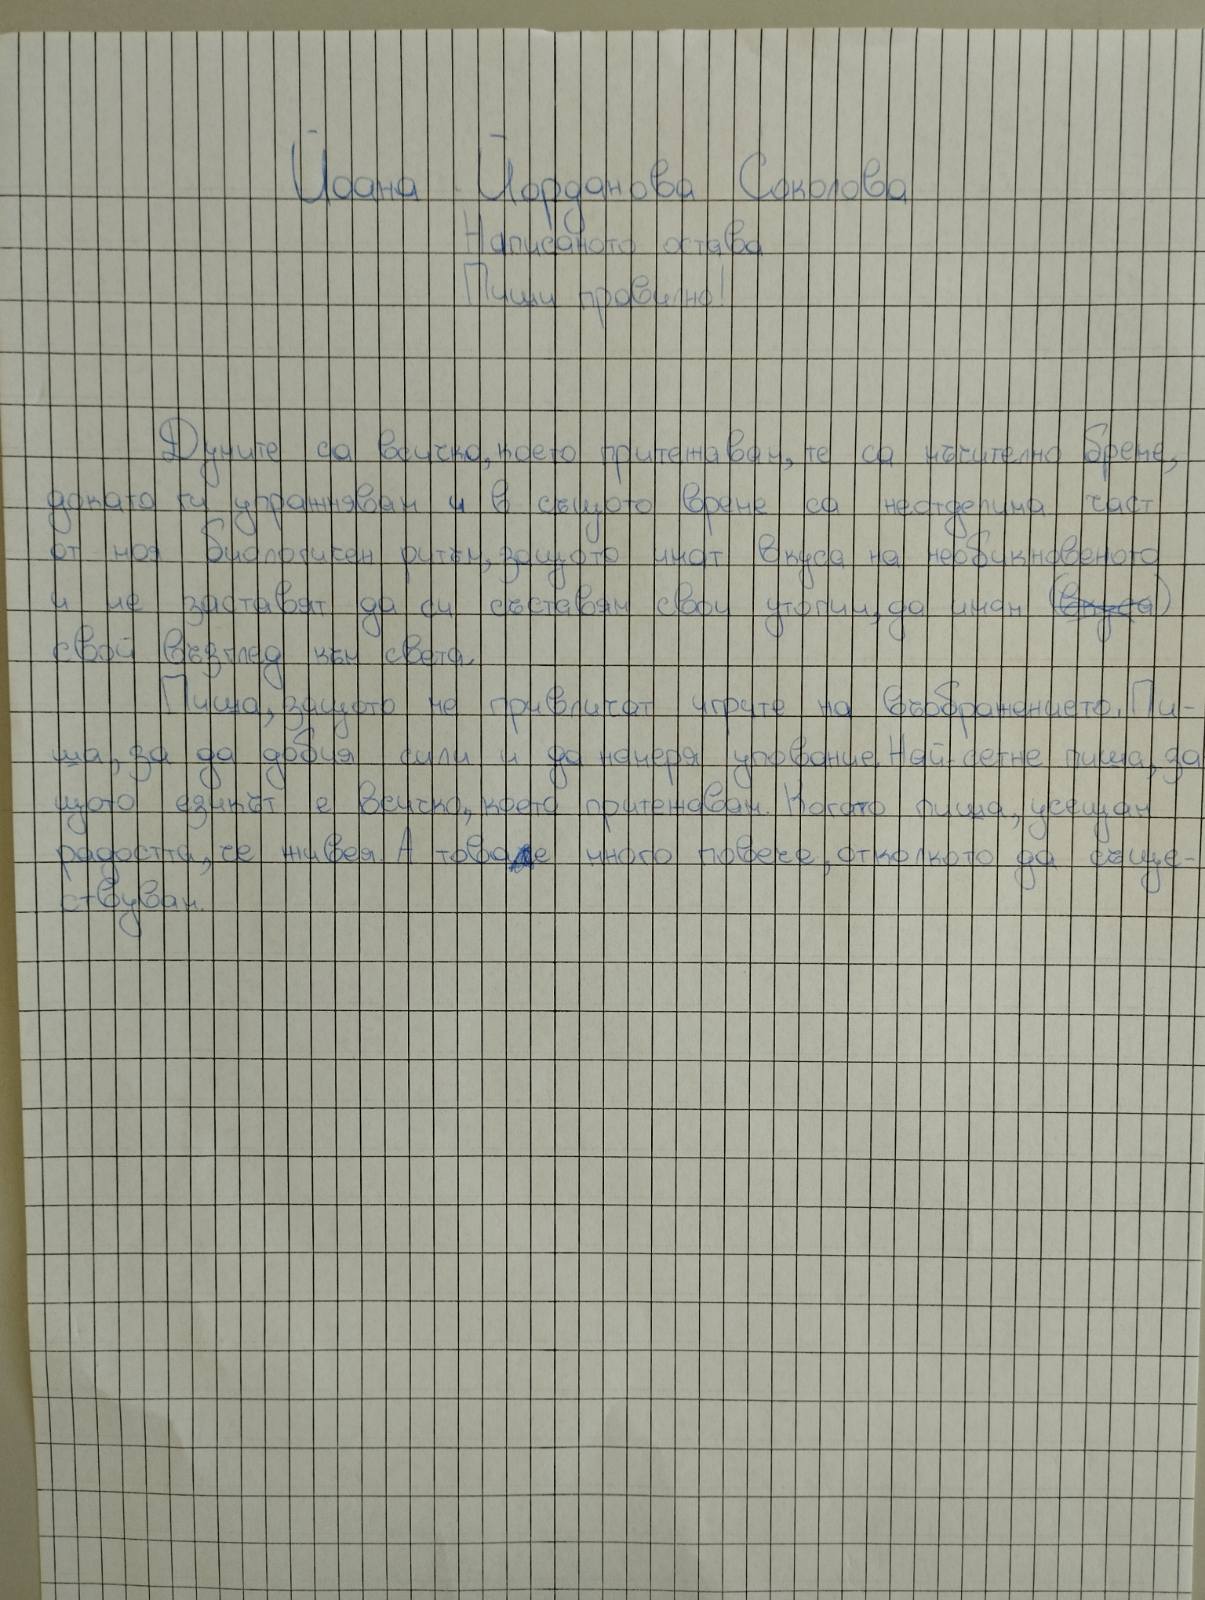 Йоана Йорданова Соколова
Написаното остава
Пиши правилно!
Думите са всичко, което притежавам, те са мъчително бреме,
докато ги упражнявам и в същото време са неотделима част
от моя биологичен ритъм, защото имат вкуса на необикновеното
и ме заставят да си съставям свои утопии, да имам (вкуса)
свой възглед към света.
Пиша, защото ме привличат игрите на въображението. Пи-
ша, за да добия сили и да намеря упование. Най-сетне пиша, за
щото езикът е всичко, което притежавам. Когато пиша, усещам
радостта, че живея. А това е много повече, отколкото да съще-
ствувам.